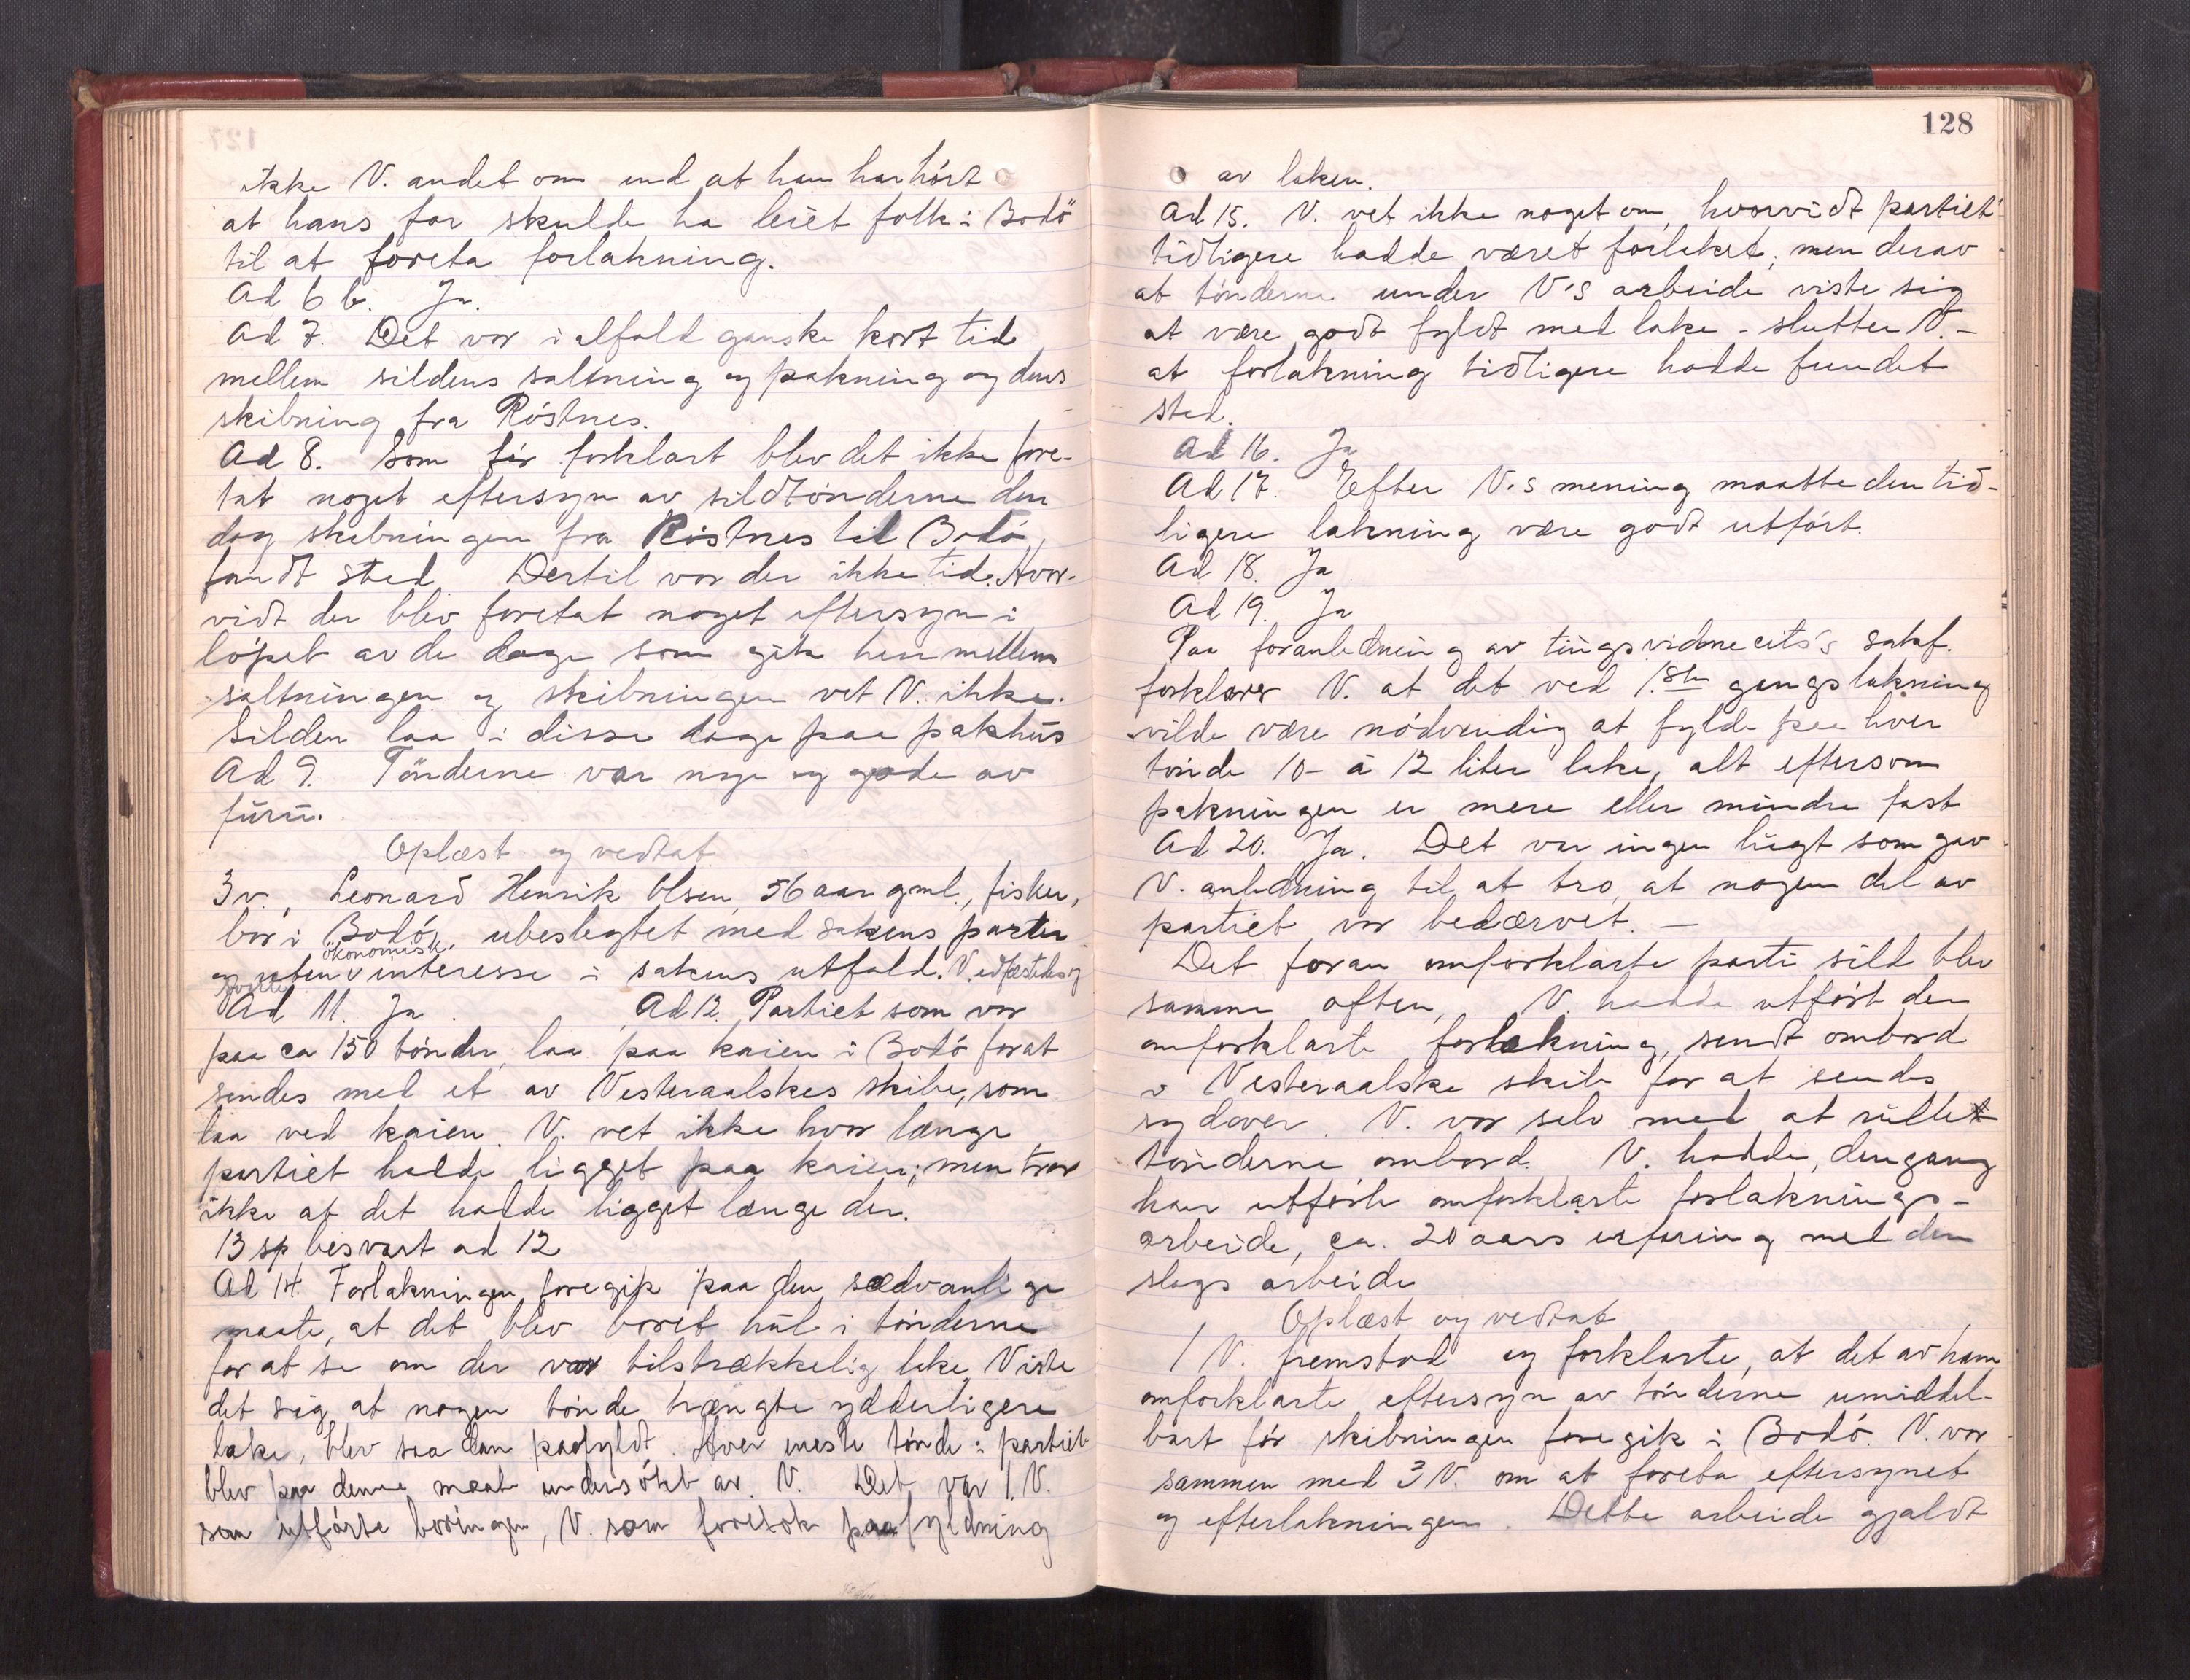 ikke V. andet om end at han har hört
at hans far skulde ha leiet folk i Bodö
til at foreta forlakning.
Ad 6 b. Ja.
Ad 7. Det var i alfald ganske kort tid
mellem sildens saltning og pakning og dens
skibning fra Röstnes.
Ad 8. Som før forklart blev det ikke fore-
tat noget eftersyn av sildtönderne den
dag skibningen fra Röstnes til Bodö,
fandt sted. Dertil var der ikke tid. Hvor-
vidt der blev foretat noget eftersyn i
löpet av de dage som gik hen mellem
saltningen og skibningen vet V. ikke.
Silden laa i disse dage paa pakhus
Ad 9. Tönderne var nye og gode av
furu.
Oplæst og vedtat
3 v., Leonard Henrik Olsen, 56 aar gml., fisker,
bor i Bodö, ubeslegtet med sakens parter
ökonomisk
og uten v interesse i sakens utfald. V. edfæstedes og
Ad 11. Ja. Ad 12. Partiet som var
paa ca 150 tönder, laa paa kaien i Bodö for at
sendes med et av Vesteraalskes skibe, som
laa ved kaien. V. vet ikke hvor længe
partiet hadde ligget paa kaien; men tror
ikke at det hadde ligget længe der.
13 sp besvart ad 12
Ad 14. Forlakningen foregik paa den sædvanlige
maate, at det blev boret hul i tönderne
for at se om der var tilstrækkelig lake. Viste
det sig at nogen tönde trængte ydderligere
lake, blev saadan paafyldt. Hver eneste tönde i partiet
blev paa denne maate undersökt av V. Det var 1. V.
som utförte boringen, V. som foretok paafyldning
128
av laken.
Ad 15. V. vet ikke noget om, hvorvidt partiet
tidligere hadde været forlaket, men derav
at tönderne under V's arbeide viste sig
at være godt fyldt med lake - slutter V. -
at forlakning tidligere hadde fundet
sted.
Ad 16. Ja
Ad 17. Efter V.s mening maatte den tid-
ligere lakning være godt utfört.
Ad 18. Ja
Ad 19. Ja
Paa foranledning av tingsvidnecits's sakf.
forklarer V. at det ved 1.ste gangs lakning
vilde være nödvendig at fylde paa hver
tönde 10 - à 12 liter lake, alt eftersom
pakningen er mere eller mindre fast
Ad 20. Ja. Det var ingen lugt som gav
V. anledning til at tro, at nogen del av
partiet var bedærvet. -
Det foran omforklarte parti sild blev
samme aften, V. hadde utfört den
omforklarte forlakning, sendt ombord
i Vesteraalske skib for at sendes
sydover. V. var selv med at rulle
tönderne ombord. V. hadde, dengang
han utförte omforklarte forlaknings-
arbeide, ca. 20 aars erfaring med den
slags arbeide
Oplæst og vedtat
1 V. fremstod og forklarte, at det av ham
omforklarte eftersyn av tönderne umiddel-
bart för skibningen foregik i Bodö. V. var
sammen med 3 V. om at foreta eftersynet
og efterlakningen. Dette arbeide gjaldt